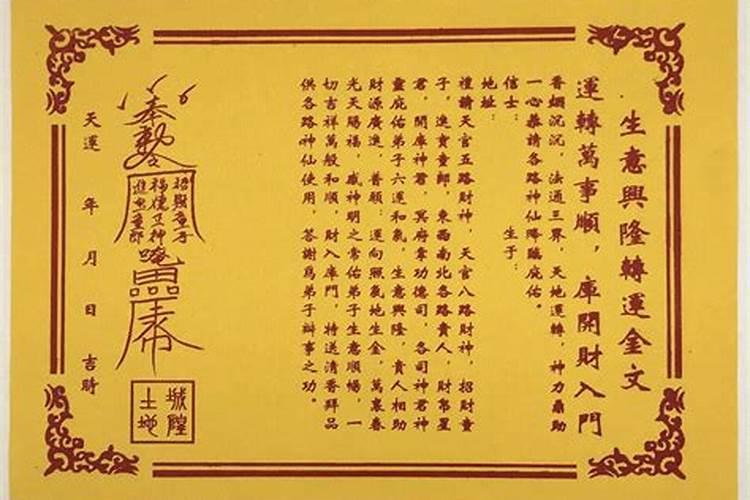 生意興隆轉運金文
運轉萬事順，庫開財入門
香煙沉沉，法通三界，天地運轉，神力鼎助
一心恭請各路神仙降臨庇佑。
信士：　　　生于：
地址：
禮請天官五路財神，天官八路財神，招財童
子，進寶童郎，東西南北各路貴人，財帛星
君，開庫神君，冥府掌功德司，各司神君神
靈庇佑弟子六運和氣，生意興隆，貴人相助
財源廣進，普願：運向照氣地生金，萬裏春
光天賜福，感神明之常佑弟子生意順暢，一
切吉祥萬般和順，財入庫門，特送清香拜品
供各路神仙使用，答謝爲弟子辦事之功。
奉勅令
招財童子
福德正神
進寶童郎
城隍
土地
天運　年　月　日　吉時